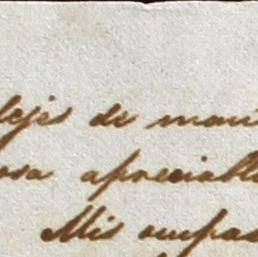 dejes de mani
osa apreciable
Mis ocupac